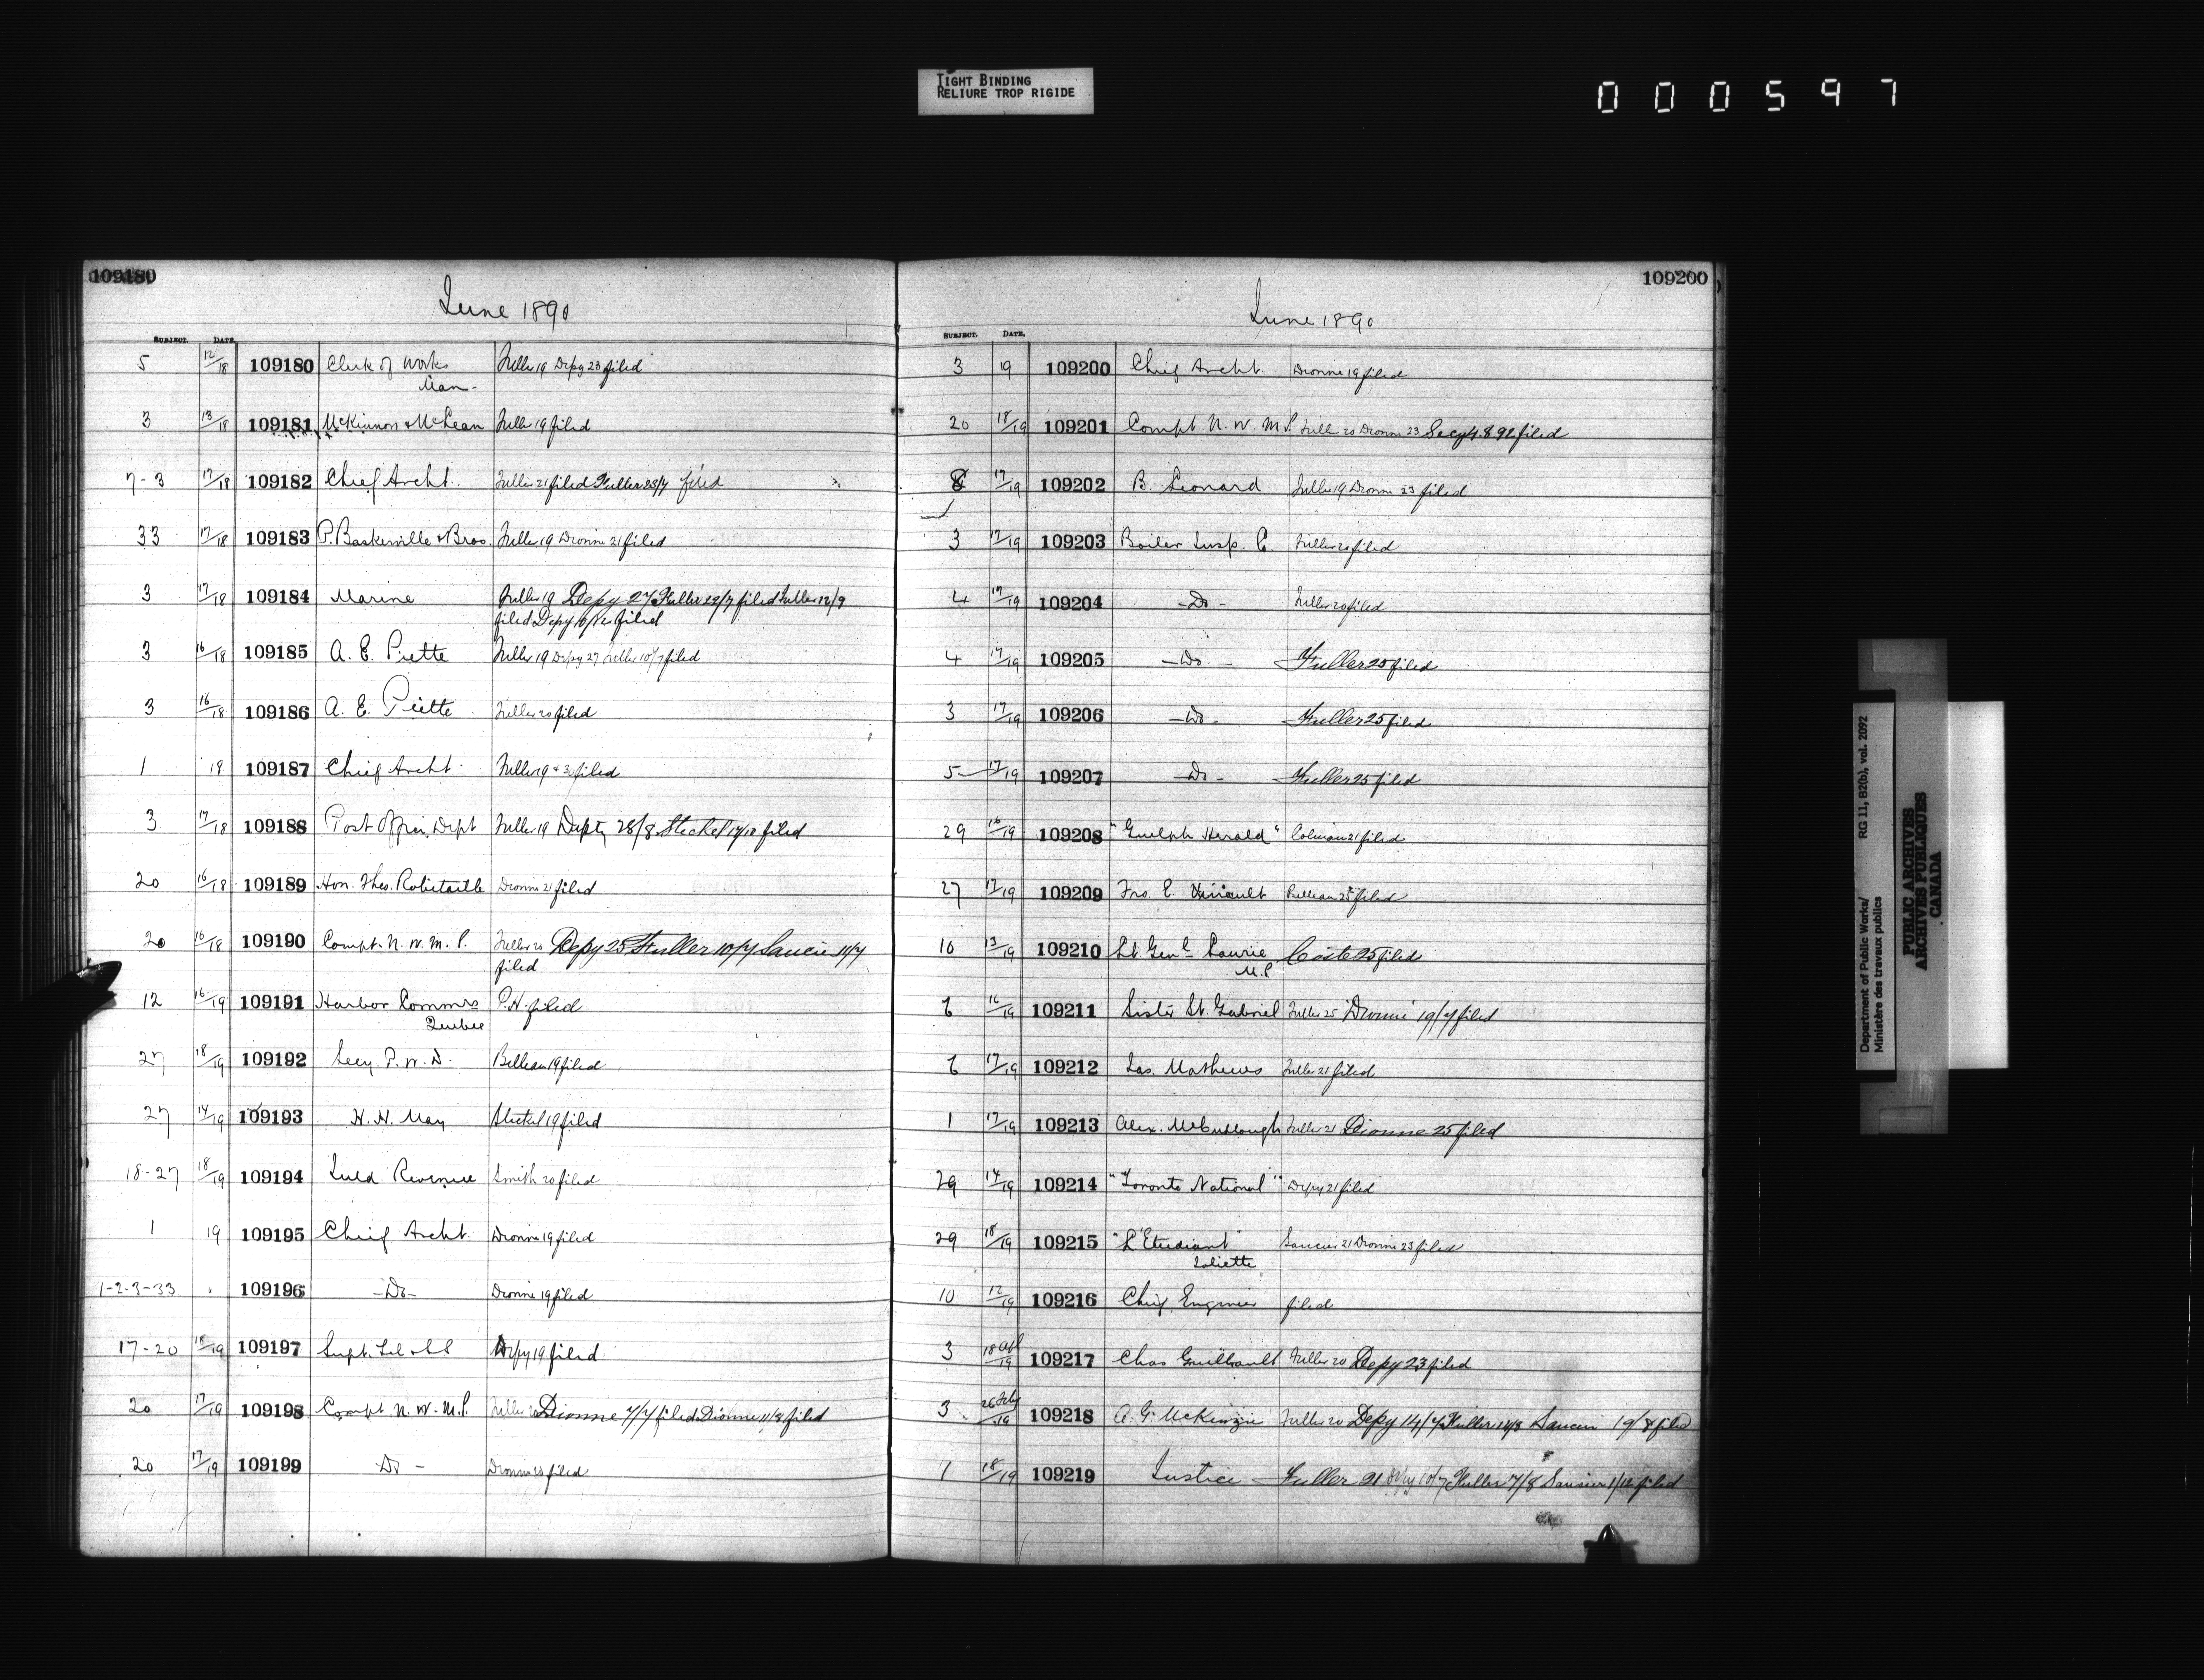 TIGHT BINDING
RELIURE TROP RIGIDE
000597
109180
June 1890
SUBJECT. DATE.
5 12/18 109180 Clerk of Works Fuller 19 Depy 23 filed
Man-
3 13/18 109181 McKinnon & McLean Fuller 19 filed
7-3 17/18 109182 Chief Archt. Fuller 21 filed Fuller 23/7 filed
33 17/18 109183 P. Baskerville & Bros. Fuller 19 Dionne 21 filed
3 17/18 109184 Marine Fuller 19 Depy 27 Fuller 22/7 filed Fuller 12/9
filed Depy filed
3 16/18 109185 A. E. Piette Fuller 19 Depy 27 Fuller 10/7 filed
3 16/18 109186 A. E. Piette Fuller 20 filed
1 18 109187 Chief Archt. Fuller 19 & 30 filed
3 17/18 109188 Post Office Dept Fuller 19 Depty 28/8 Steckel 17/10 filed
20 16/18 109189 Hon. Theo. Robietaille Dionne 21 filed
20 16/18 109190 Compt. N. W. M. P. Fuller 20 Depy 25 Fuller 10/7 Saucier 11/7
filed
12 16/19 109191 Harbor Commrs P.H. filed
Quebec
27 18/19 109192 Secy. P. W. D. Belleau 19 filed
27 14/19 109193 H. H. May Steckel 19 filed
18-27 18/19 109194 Inld Revenue Smith 20 filed
1 19 109195 Chief Archt. Dionne 19 filed
1-2-3-33 " 109196 -Do- Dionne 19 filed
17-20 18/19 109197 Supt. Tel Depy 19 filed
20 17/19 109198 Compt N. W. M. P. Fuller 20 Dionne 7/7 filed Dionne 11/8 filed
20 17/19 109199 Do - Dionne 23 filed
109200
June 1890
SUBJECT. DATE.
3 19 109200 Chief Archt. Dionne 19 filed
20 18/19 109201 Compt. N. W. M. P. Fuller 20 Dionne 23 Secy 4.8.92 filed
8 17/19 109202 B. Leonard Fuller 19 Dionne 23 filed
3 17/19 109203 Boiler Insp. C. Fuller 20 filed
4 17/19 109204 -Do- Fuller 20 filed
4 17/19 109205 -Do- Fuller 25 filed
3 17/19 109206 -Do- Fuller 25 filed
5 17/19 109207 -Do- Fuller 25 filed
29 16/19 109208 "Guelph Herald" Colman 21 filed
27 17/19 109209 Frs. E. Belleau 25 filed
10 13/19 109210 Lt. Genl Laurie Coste 25 filed
M.P.
6 16/19 109211 Sister St. Gabriel Fuller 25 Dionne 19/7 filed
6 17/19 109212 Jas. Mathews Fuller 21 filed
1 17/19 109213 Alex. McCullough Fuller 21 Dionne 25 filed
29 14/19 109214 "Toronto National" Depy 21 filed
29 18/19 109215 "L'Etudiant" Saucier 21 Dionne 23 filed
Joliette
10 12/19 109216 Chief Engineer filed
3 18 Apl/19 109217 Chas Guilbault Fuller 20 Depy 23 filed
3 26 Feby/19 109218 A. G. McKenzie Fuller 20 Depy 14/7 Fuller 14/8 Saucier 19/8 filed
7 18/19 109219 Justice - Fuller 21 Depy 10/7 Fuller 7/8 Saucier 1/12 filed
Department of Public Works/ RG 11, B2(b), vol. 2092
Ministère des travaux publics
PUBLIC ARCHIVES
ARCHIVES PUBLIQUES
CANADA